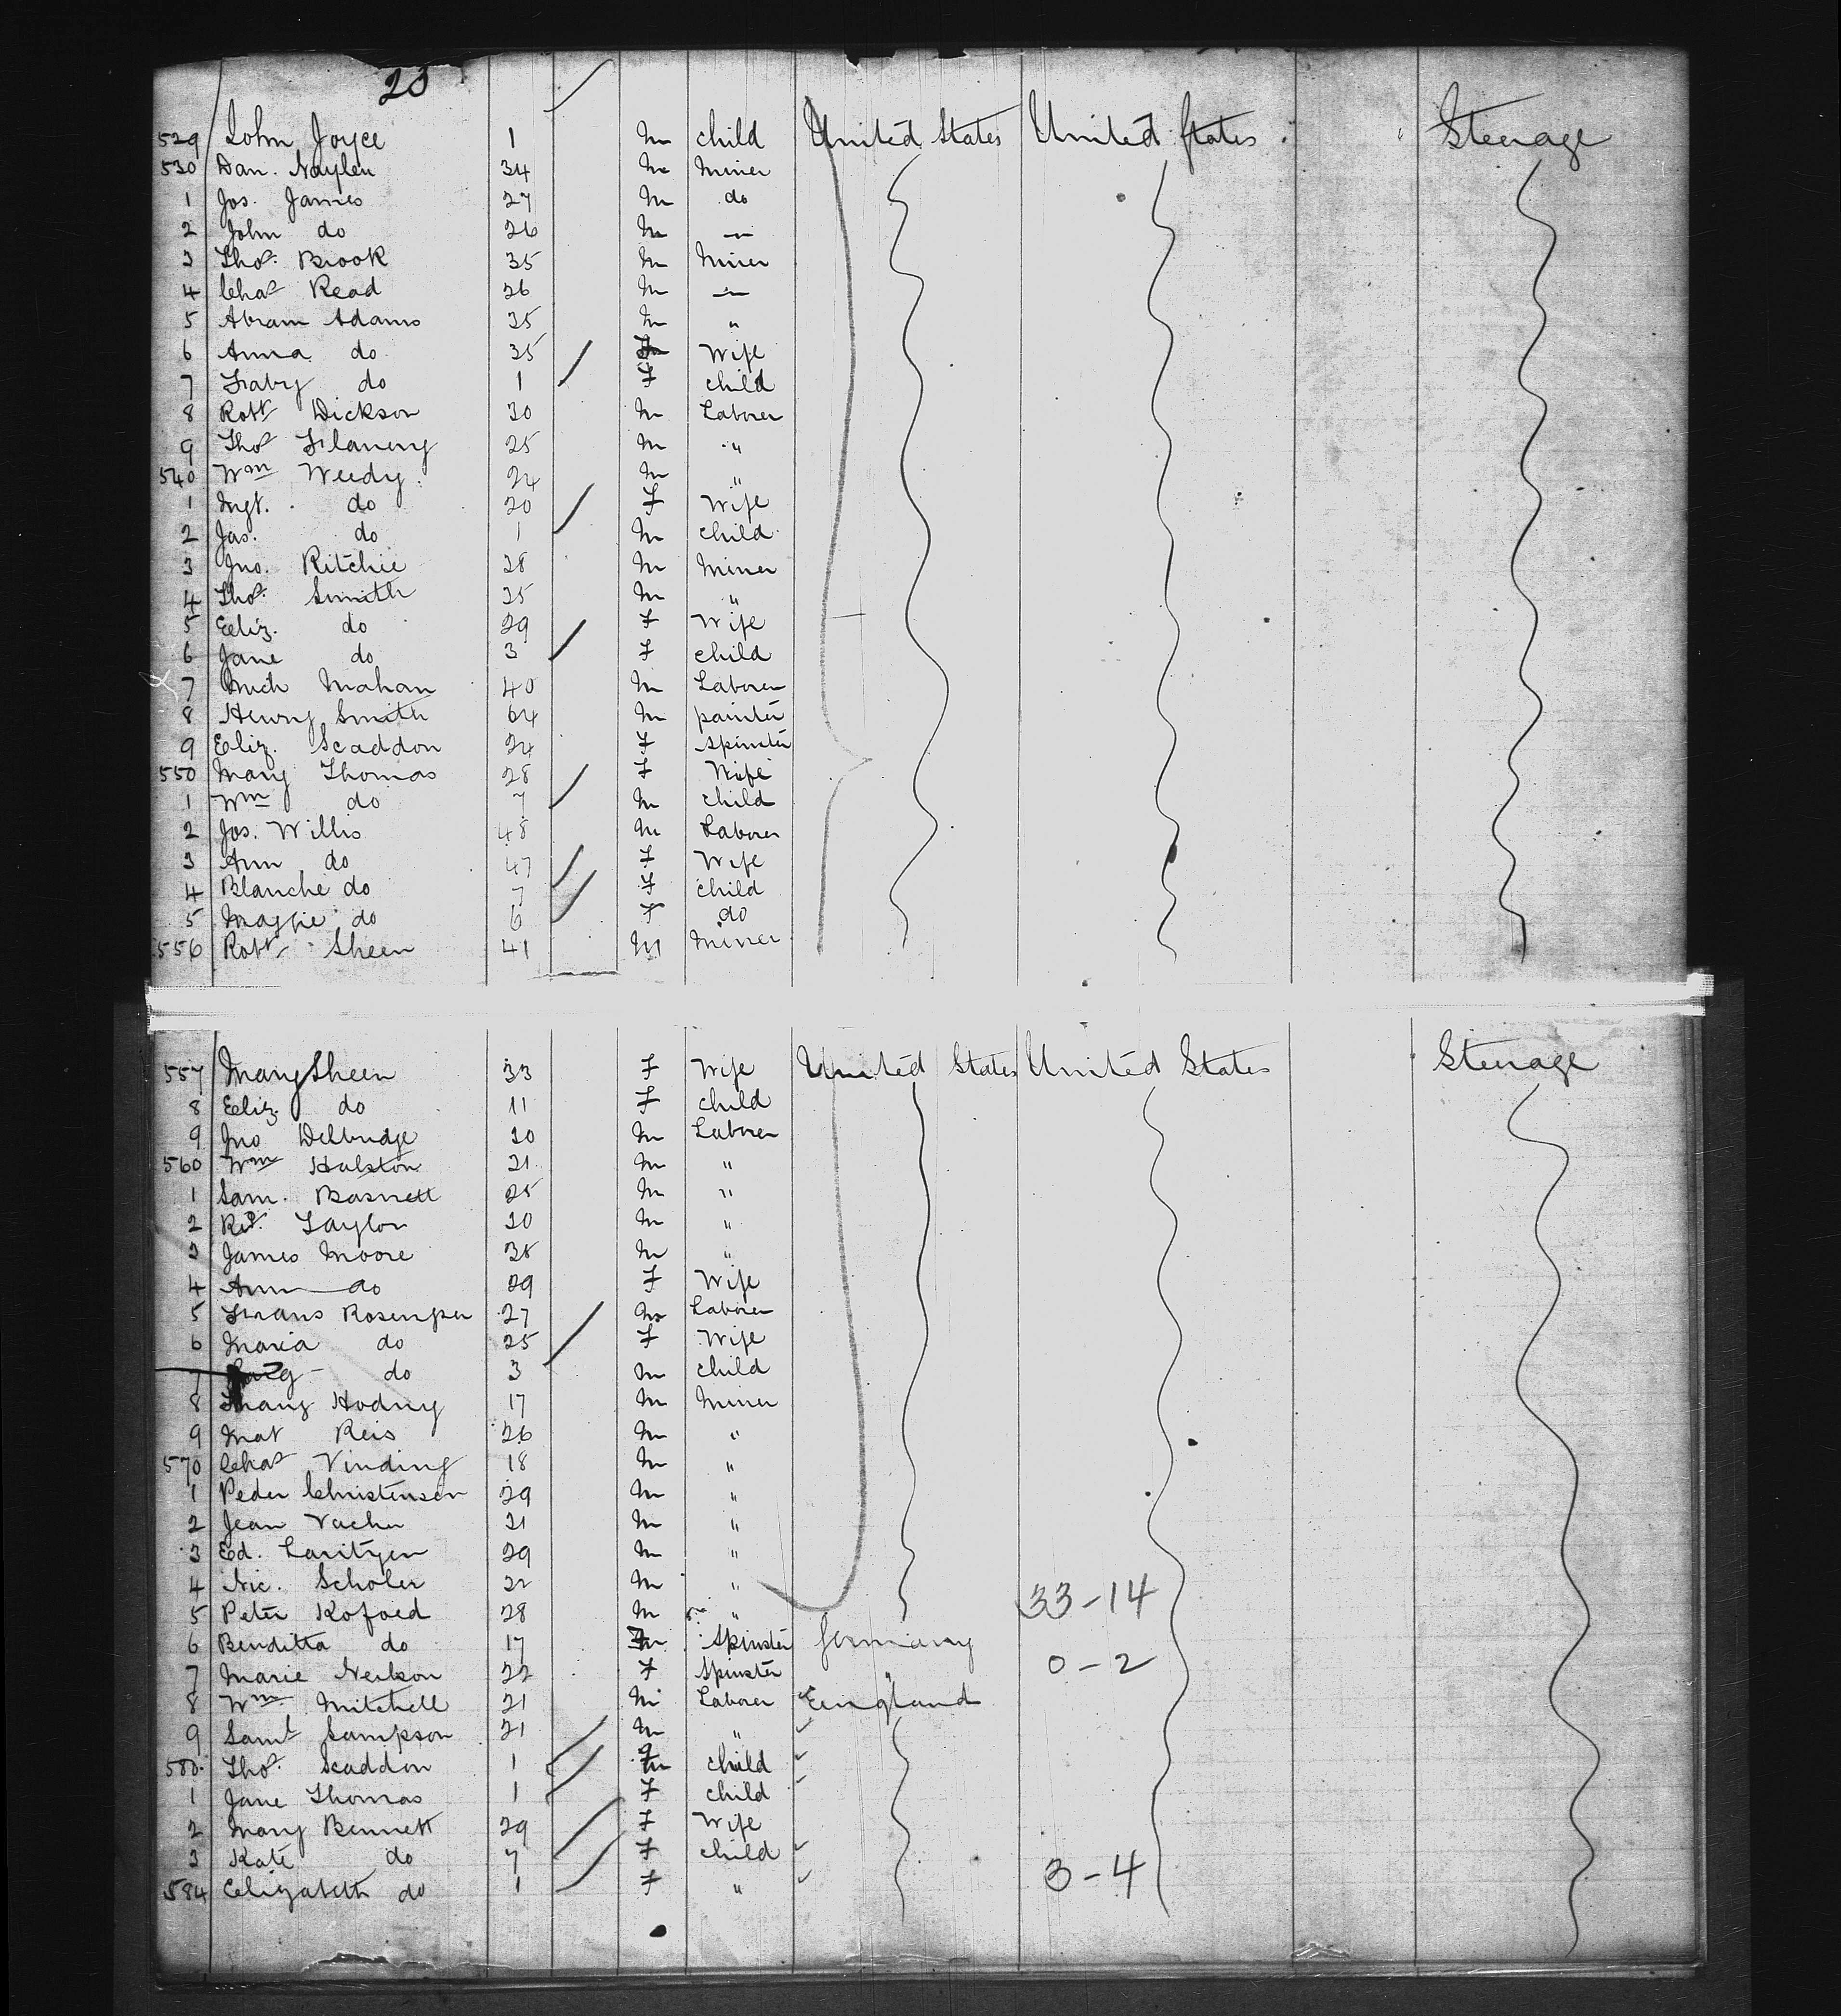 23
529 John Joyce 1 M child United States United States Steerage
530 Dan. Naylen 34 M Miner
1 Jos. James 27 M do
2 John do 26 M "
3 Thos. Brook 35 M Miner
4 Chas Read 26 M "
5 Abram Adams 35 M "
6 Anna do 35 F Wife
7 do 1 F child
8 Robt Dickson 30 M Laborer
9 Thos Flanery 25 M "
540 Wm Weedy 24 M "
1 Mgt. do 20 F Wife
2 Jas. do 1 M child
3 Jno. Ritchie 28 M Miner
4 Thos. Smith 35 M "
5 Eliz. do 29 F Wife
6 Jane do 3 F child
7 Mich Mahan 40 M Laborer
8 Henry Smith 64 M painter
9 Eliz. Scaddon 24 F Spinster
550 Mary Thomas 28 F Wife
1 Wm do 7 M child
2 Jos. Willis 48 M Laborer
3 Ann do 47 F Wife
4 Blanche do 7 F child
5 Maggie do 6 F do
556 Robt Sheen 41 M Miner
557 Mary Sheen 33 F Wife United States United States Steerage
8 Eliz. do 11 F child
9 Jno Delbridge 20 M Laborer
560 Wm Halston 21 M "
1 Sam. Basnett 25 M "
2 Rd. Taylor 20 M "
3 James Moore 38 M "
4 Ann do 29 F Wife
5 Frans 27 M Laborer
6 Maria do 25 F Wife
7 do 3 M child
8 Franz Hodny 17 M Miner
9 Mat Reis 26 M "
570 Chas Vinding 18 M "
1 Peder Christensen 29 M "
2 Jean 21 M "
3 Ed. Lauritzen 29 M "
4 Nic. Scholer 22 M " 33-14
5 Peter Kofoed 28 M "
6 Benditta do 17 F Spinster Germany
7 Marie Neilson 22 F Spinster " 0-2
8 Wm Mitchell 21 M Laborer England
9 Saml Sampson 21 M "
580 Thos. Scaddon 1 M child
1 Jane Thomas 1 F child
2 Mary Bennett 29 F Wife
3 Kate do 7 F child 3-4
584 Elizabeth do 1 F "